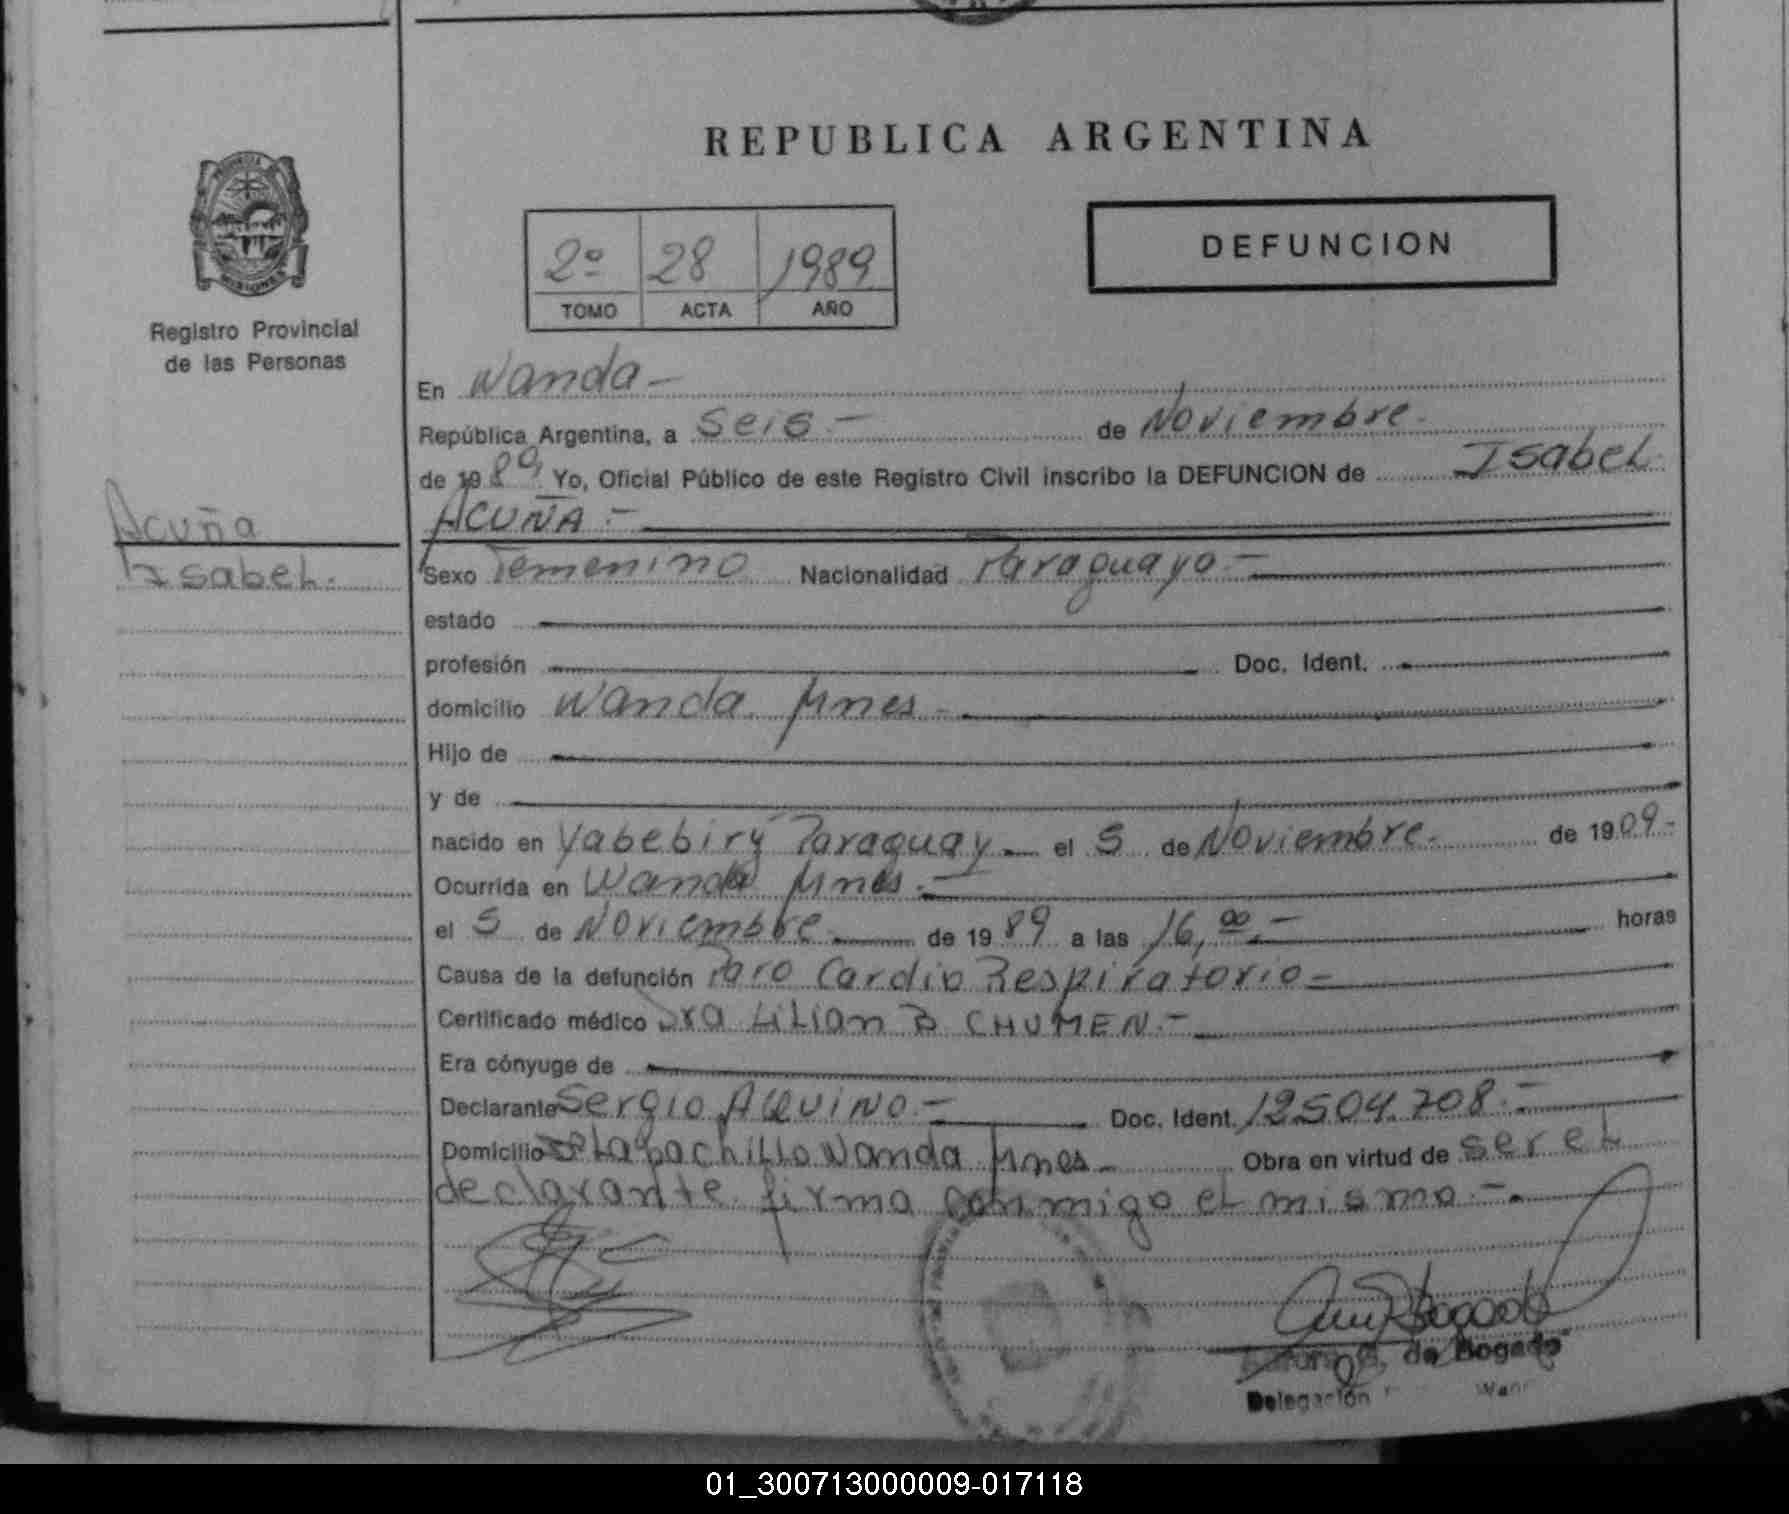 REPUBLICA ARGENTINA
DEFUNCION
2º 28 1989
TOMO ACTA AÑO
MISIONES
Registro Provincial
de las Personas
Acuña
Isabel.
En Wanda -
República Argentina, a Seis - de Noviembre.
de 1989 Yo, Oficial Público de este Registro Civil inscribo la DEFUNCION de Isabel
ACUÑA -
Sexo Femenino Nacionalidad Paraguayo -
estado
profesión Doc. Ident.
domicilio Wanda Mnes -
Hijo de
y de
nacido en Yabebiry Paraguay el 5 de Noviembre. de 1909.-
Ocurrida en Wanda Mnes. -
el 5 de Noviembre de 1989 a las 16,00.- horas
Causa de la defunción Paro Cardio Respiratorio -
Certificado médico Dra Lilian B CHUMEN.-
Era cónyuge de
Declarante Sergio AQUINO - Doc. Ident. 12504.708.-
Domicilio Lapachillo Wanda Mnes - Obra en virtud de ser el
declarante firma conmigo el mismo.-
de Bogado
Delegación
01_300713000009-017118